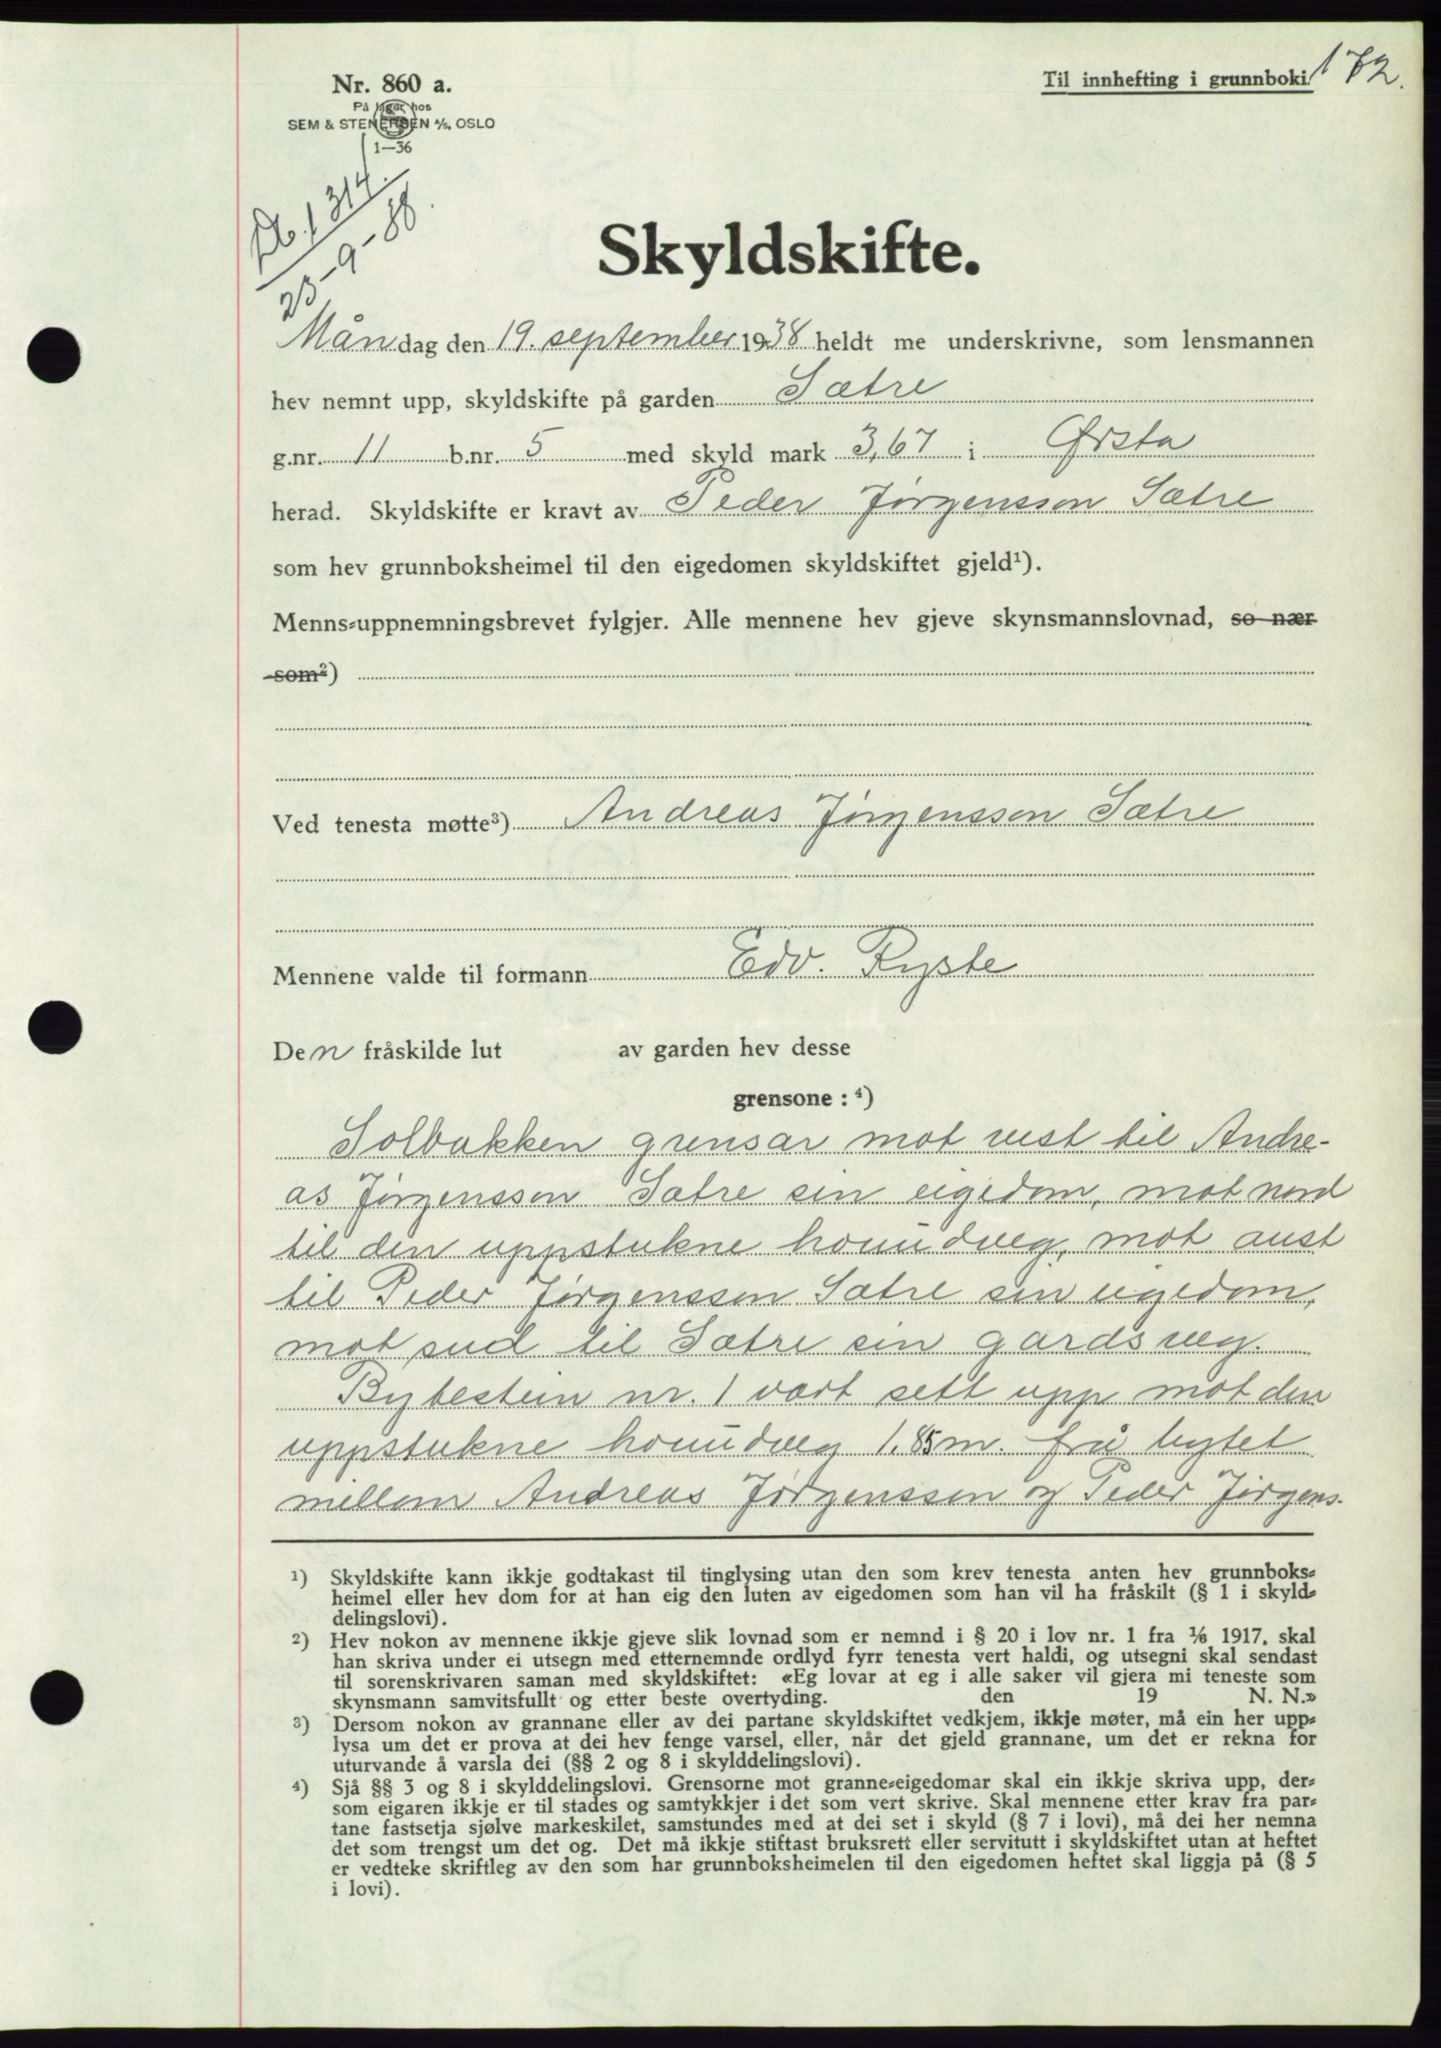 172.
Nr. 860 a.
Til innhefting i grunnboki
På lager hos
SEM & STENERSEN A/S, OSLO
1—36
Db. 1314.
23-9-38.
Skyldskifte.
Måndag den 19. september 1938 heldt me underskrivne, som lensmannen
hev nemnt upp, skyldskifte på garden Sætre
g.nr. 11 b.nr. 5 med skyld mark 3,67 i Ørsta
herad. Skyldskifte er kravt av Peder Jørgensson Sætre
som hev grunnboksheimel til den eigedomen skyldskiftet gjeld¹).
Menns-uppnemningsbrevet fylgjer. Alle mennene hev gjeve skynsmannslovnad, so nær
som²)
Ved tenesta møtte³) Andreas Jørgensson Sætre
Mennene valde til formann Edv. Ryste
Den fråskilde lut av garden hev desse
grensone : ⁴)
Solbakken grensar mot vest til Andre-
as Jørgensson Sætre sin eigedom, mot nord
til den uppstukne houudveg, mot aust
til Peder Jørgensson Sætre sin eigedom,
mot sud til Sætre sin gardsveg.
Bytestein nr. 1 vart sett upp mot den
uppstukne houudveg 1,85 m. frå bytet
millom Andreas Jørgensson og Peder Jørgens-
¹) Skyldskifte kann ikkje godtakast til tinglysing utan den som krev tenesta anten hev grunnboks-
heimel eller hev dom for at han eig den luten av eigedomen som han vil ha fråskilt (§ 1 i skyld-
delingslovi).
²) Hev nokon av mennene ikkje gjeve slik lovnad som er nemnd i § 20 i lov nr. 1 fra ⅙ 1917, skal
han skriva under ei utsegn med etternemnde ordlyd fyrr tenesta vert haldi, og utsegni skal sendast
til sorenskrivaren saman med skyldskiftet: «Eg lovar at eg i alle saker vil gjera mi teneste som
skynsmann samvitsfullt og etter beste overtyding. den 19 N. N.»
³) Dersom nokon av grannane eller av dei partane skyldskiftet vedkjem, ikkje møter, må ein her upp-
lysa um det er prova at dei hev fenge varsel, eller, når det gjeld grannane, um det er rekna for
uturvande å varsla dei (§§ 2 og 8 i skylddelingslovi).
⁴) Sjå §§ 3 og 8 i skylddelingslovi. Grensorne mot granne-eigedomar skal ein ikkje skriva upp, der-
som eigaren ikkje er til stades og samtykkjer i det som vert skrive. Skal mennene etter krav fra par-
tane fastsetja sjølve markeskilet, samstundes med at dei set i skyld (§ 7 i lovi), må dei her nemna
det som trengst um det og. Det må ikkje stiftast bruksrett eller servitutt i skyldskiftet utan at heftet
er vedteke skriftleg av den som har grunnboksheimelen til den eigedomen heftet skal liggja på (§ 5
i lovi).